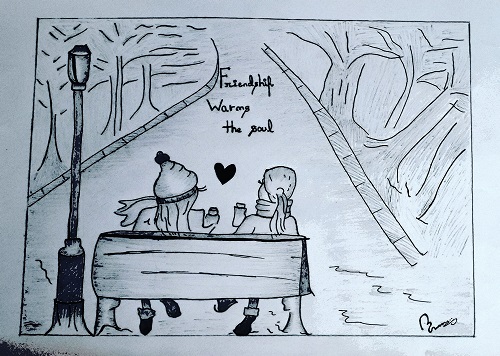 Friendship
Warms
the soul